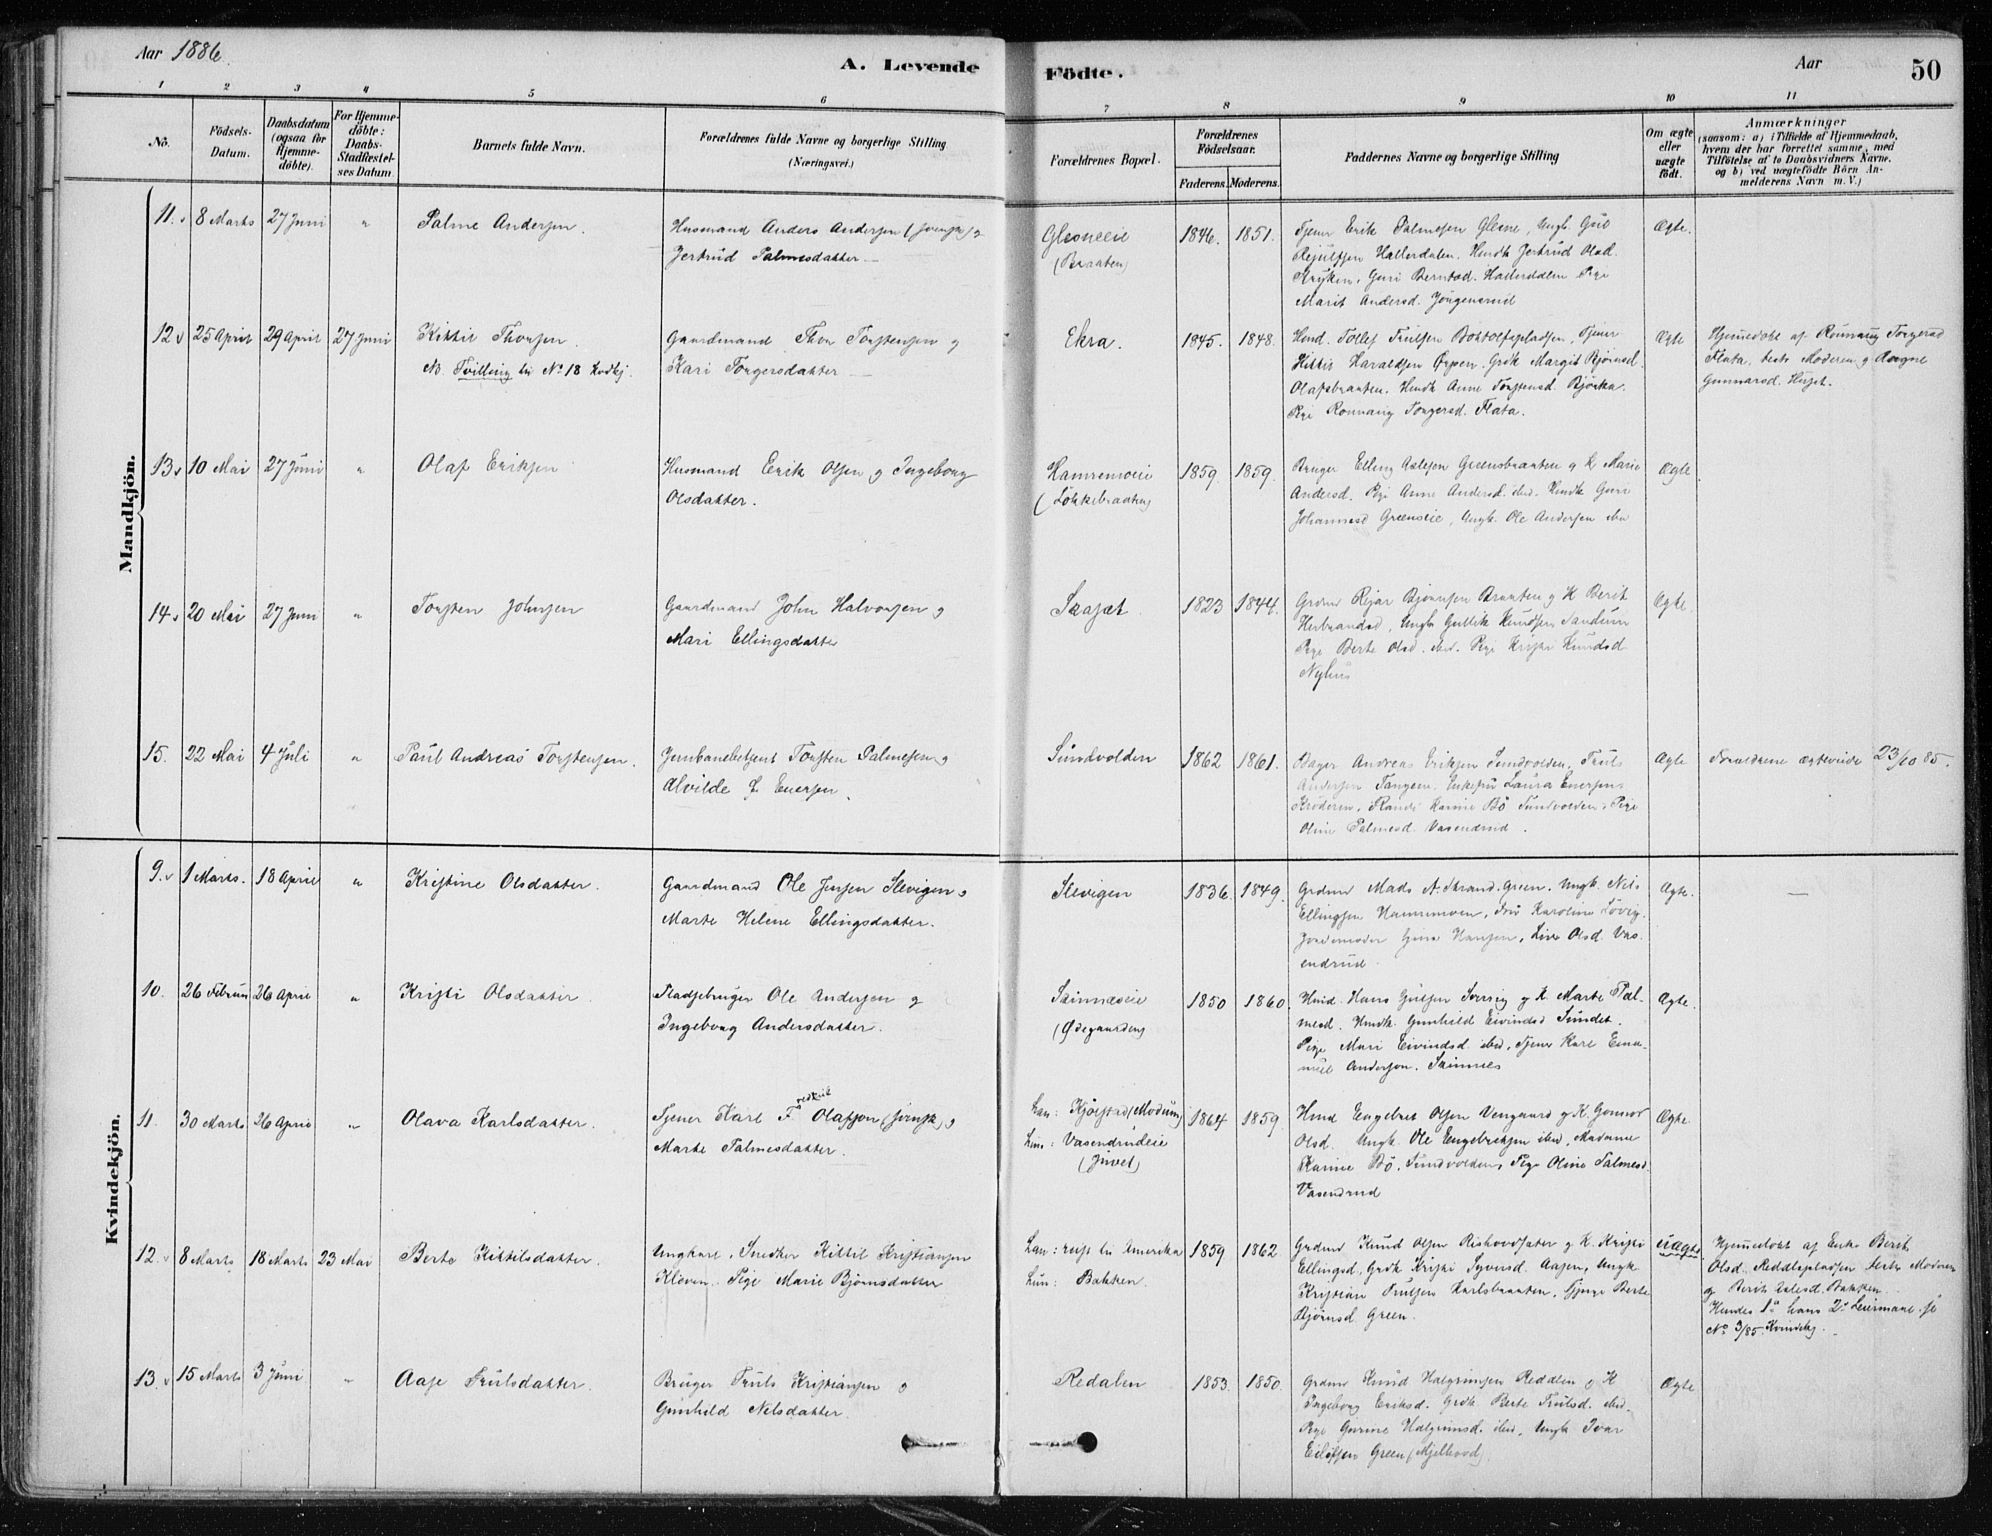 Aar 1886.
A. Levende
Födte.
Aar
50
1 2 3 4 5 6 7 8 9 10 11
No.
Födsels-
Datum.
Daabsdatum
(ogsaa for
Hjemme-
döbte).
For Hjemme-
döbte:
Daabs-
Stadfæstel-
ses Datum
Barnets fulde Navn.
Forældrenes fulde Navne og borgerlige Stilling
(Næringsvei.)
Forældrenes Bopæl.
Forældrenes
Födselsaar.
Faderens. Moderens.
Faddernes Navne og borgerlige Stilling
Om ægte
eller
uægte
födt.
Anmærkninger
(saasom: a) i Tilfælde af Hjemmedaab,
hvem der har forrettet samme, med
Tilföielse af to Daabsvidners Navne.
og b) ved uægtefödte Börn An-
melderens Navn m. V.)
Mandkjön.
11. 8 Marts 27 Juni " Palme Andersen.
Husmand Anders Andersen (Svensk) og
Jertrud Palmesdatter
(Braaten)
1846. 1851.
Tjener Erik Palmesen Glesne, Ungk. Gul
Hallerdalen. Hmdk Jertrud Olsd.
Guri Berntsd. Hallerdalen Pige
Marit Andersd.
Ægte.
12 25 April 29 April 27 Juni Kittil Thorsen.
NB. Tvilling til No 18 Kvdkj.
Gaardmand Thor Torstensen og
Kari Torgersdatter
Ekra.
1845. 1848.
Hmd. Tollef Trulsen
Kittil Haraldsen Grdk Margit Bjørnsd.
Olafsbraaten. Hmdk Anne Torstensd. Bjørka.
Pige Ronnaug Torgersd. Flata.
Ægte
Hjemmedøbt af Ronnaug Torgersd
Flata, testes Moderen og Aagne
Gunnarsd. Huset.
13 10 Mai 27 Juni " Olaf Eriksen
Husmand Erik Olsen og Ingeborg
Olsdatter.
Hamremoeie
(Løkkebraaten)
1859. 1859.
Bruger Elling Aslesen Greensbraaten og K Marie
Andersd. Pige Anne Andersd. ibid. Hmdk Guri
Johannesd Greenseie, Ungk. Ole Andersen ibid
Ægte
14 20 Mai 27 Juni " Torsten Johnsen
Gaardmand John Halvorsen og
Mari Ellingsdatter
1823 1844.
Grdmd Rejar Bjørnsen Braaten og K Berit
Herbrandsd, Ungk Gullik Knudsen Sandum
Pige Berte Olsd. ibid. Pige Kristi Knudsd
Nyhus
Ægte.
15. 22 Mai 4 Juli " Paul Andreas Torstensen.
Jernbanebetjent Torsten Palmesen og
Alvilde J Enersen.
Sundvolden
1862 1861.
Bager Andreas Eriksen Sundvolden, Truls
Andersen Tangen. Enkefru Laura Enersen
Krøderen, Karine Bø Sundvolden, Pige
Oline Palmesd. Vasendrud.
Ægte
Forældrene ægteviede 23/10 85.
Kvindekjön.
9. 1 Marts. 18 April " Kristine Olsdatter.
Gaardmand Ole Jensen Slevigen og
Marte Helene Ellingsdatter.
Slevigen
1836. 1849.
Grdmd Mads A. Strand. Green. Ungk. Nils
Ellingsen Hamremoen, Fru Karoline Løvig.
Jordemoder Gina Hansen, Live Olsd. Vas-
endrud.
Ægte. —
10. 26 Februar 26 April " Kristi Olsdatter.
Pladsebruger Ole Andersen og
Ingeborg Andersdatter.
(Ødegaarden)
1850 1860.
Hmd. Hans Gulsen og K. Marte Pal-
mesd. Hmdk. Gunhild Eivindsd Sundet.
Pige Mari Eivindsd. ibid, Tjener Karl Ema-
nuel Andersen.
Ægte.
11. 30 Marts 26 April " Olava Karlsdatter.
Tjener Karl Fredrik Olafson (Svensk) og
Marte Palmesdatter.
Han: Kjølstad (Modum)
Hun: Vasendrudeie
(Juvet)
1864 1859
Hmd Engebret Olsen Vengaard og K. Gonnor
Olsd. Ungk. Ole Engebretsen ibid, Madame
Karine Bø, Sundvolden, Pige Oline Palmesd.
Vasendrud
Ægte.
12. 8 Marts 18 Marts 23 Mai Berte Kittilsdatter.
Ungkarl, Snedker Kittil Kristiansen
Kleven. Pige Marie Bjørnsdatter
Han: rejst til Amerika
Hun: Bakken.
1859 1862.
Grdmd Knud Olsen og K. Kristi
Ellingsd, Grdk Kristi Syversd. Aasen, Ungk
Kristian Trulsen Karlsbraaten, Pige Berte
Bjørnsd Green.
uægte.
Hjemmedøbt af Enke Berit
Olsd. Testes Moderen
og Berit Bakken.
Hendes 1ste hans 2det Leiermaal. jf
No 3/85. Kvindekj.
13. 15 Marts 3 Juni " Aase Trulsdatter.
Bruger Truls Kristiansen og
Gunhild Nilsdatter.
Redalen
1853. 1850.
Grdmd Knud Halgrimsen Reddlen og K
Ingeborg Eriksd. Grdk Berte Trulsd. ibid.
Pige Gurine Halgrimsd. ibid, Ungk Ivar
Green (Mjelhovd).
Ægte